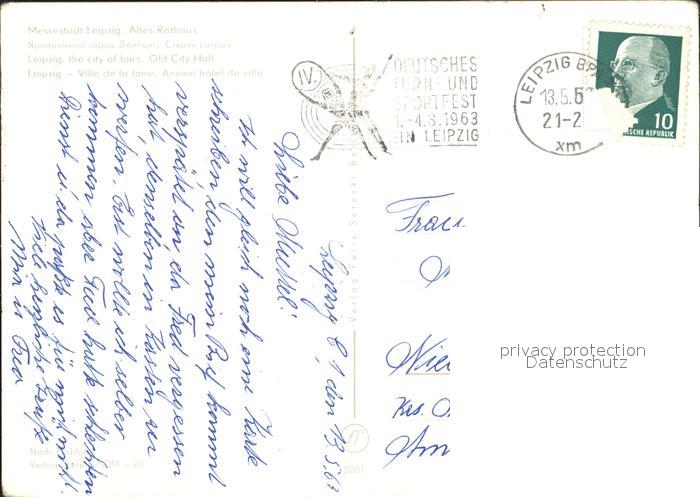 Messestadt Leipzig. Altes Rathaus
Ярмарочный город Лейпциг. Старая ратуша
Leipzig, the city of fairs. Old City Hall
Leipzig – Ville de la foire. Ancien hôtel de ville
IV.
DEUTSCHES
TURN- UND
SPORTFEST
1.-4.8.1963
IN LEIPZIG
LEIPZIG BPA
13.5.6
21-2
xm
10
ISCHE REPUBLIK
Leipzig C 1, den 13.5.63
Liebe Muttel!
Ich will gleich noch eine Karte
schreiben, denn mein Brief kommt
verspätet an da Fred vergessen
hat, denselben in Kasten zu
werfen. Erst wollte ich selber
kommen aber Fred hatte schlechten
Dienst u. da paßte es für mich nicht.
Viele herzliche Grüße
Fred
Verlag Felix Setecki
Frau
Nie
Krs.
Am
privacy protection
Datenschutz
2001